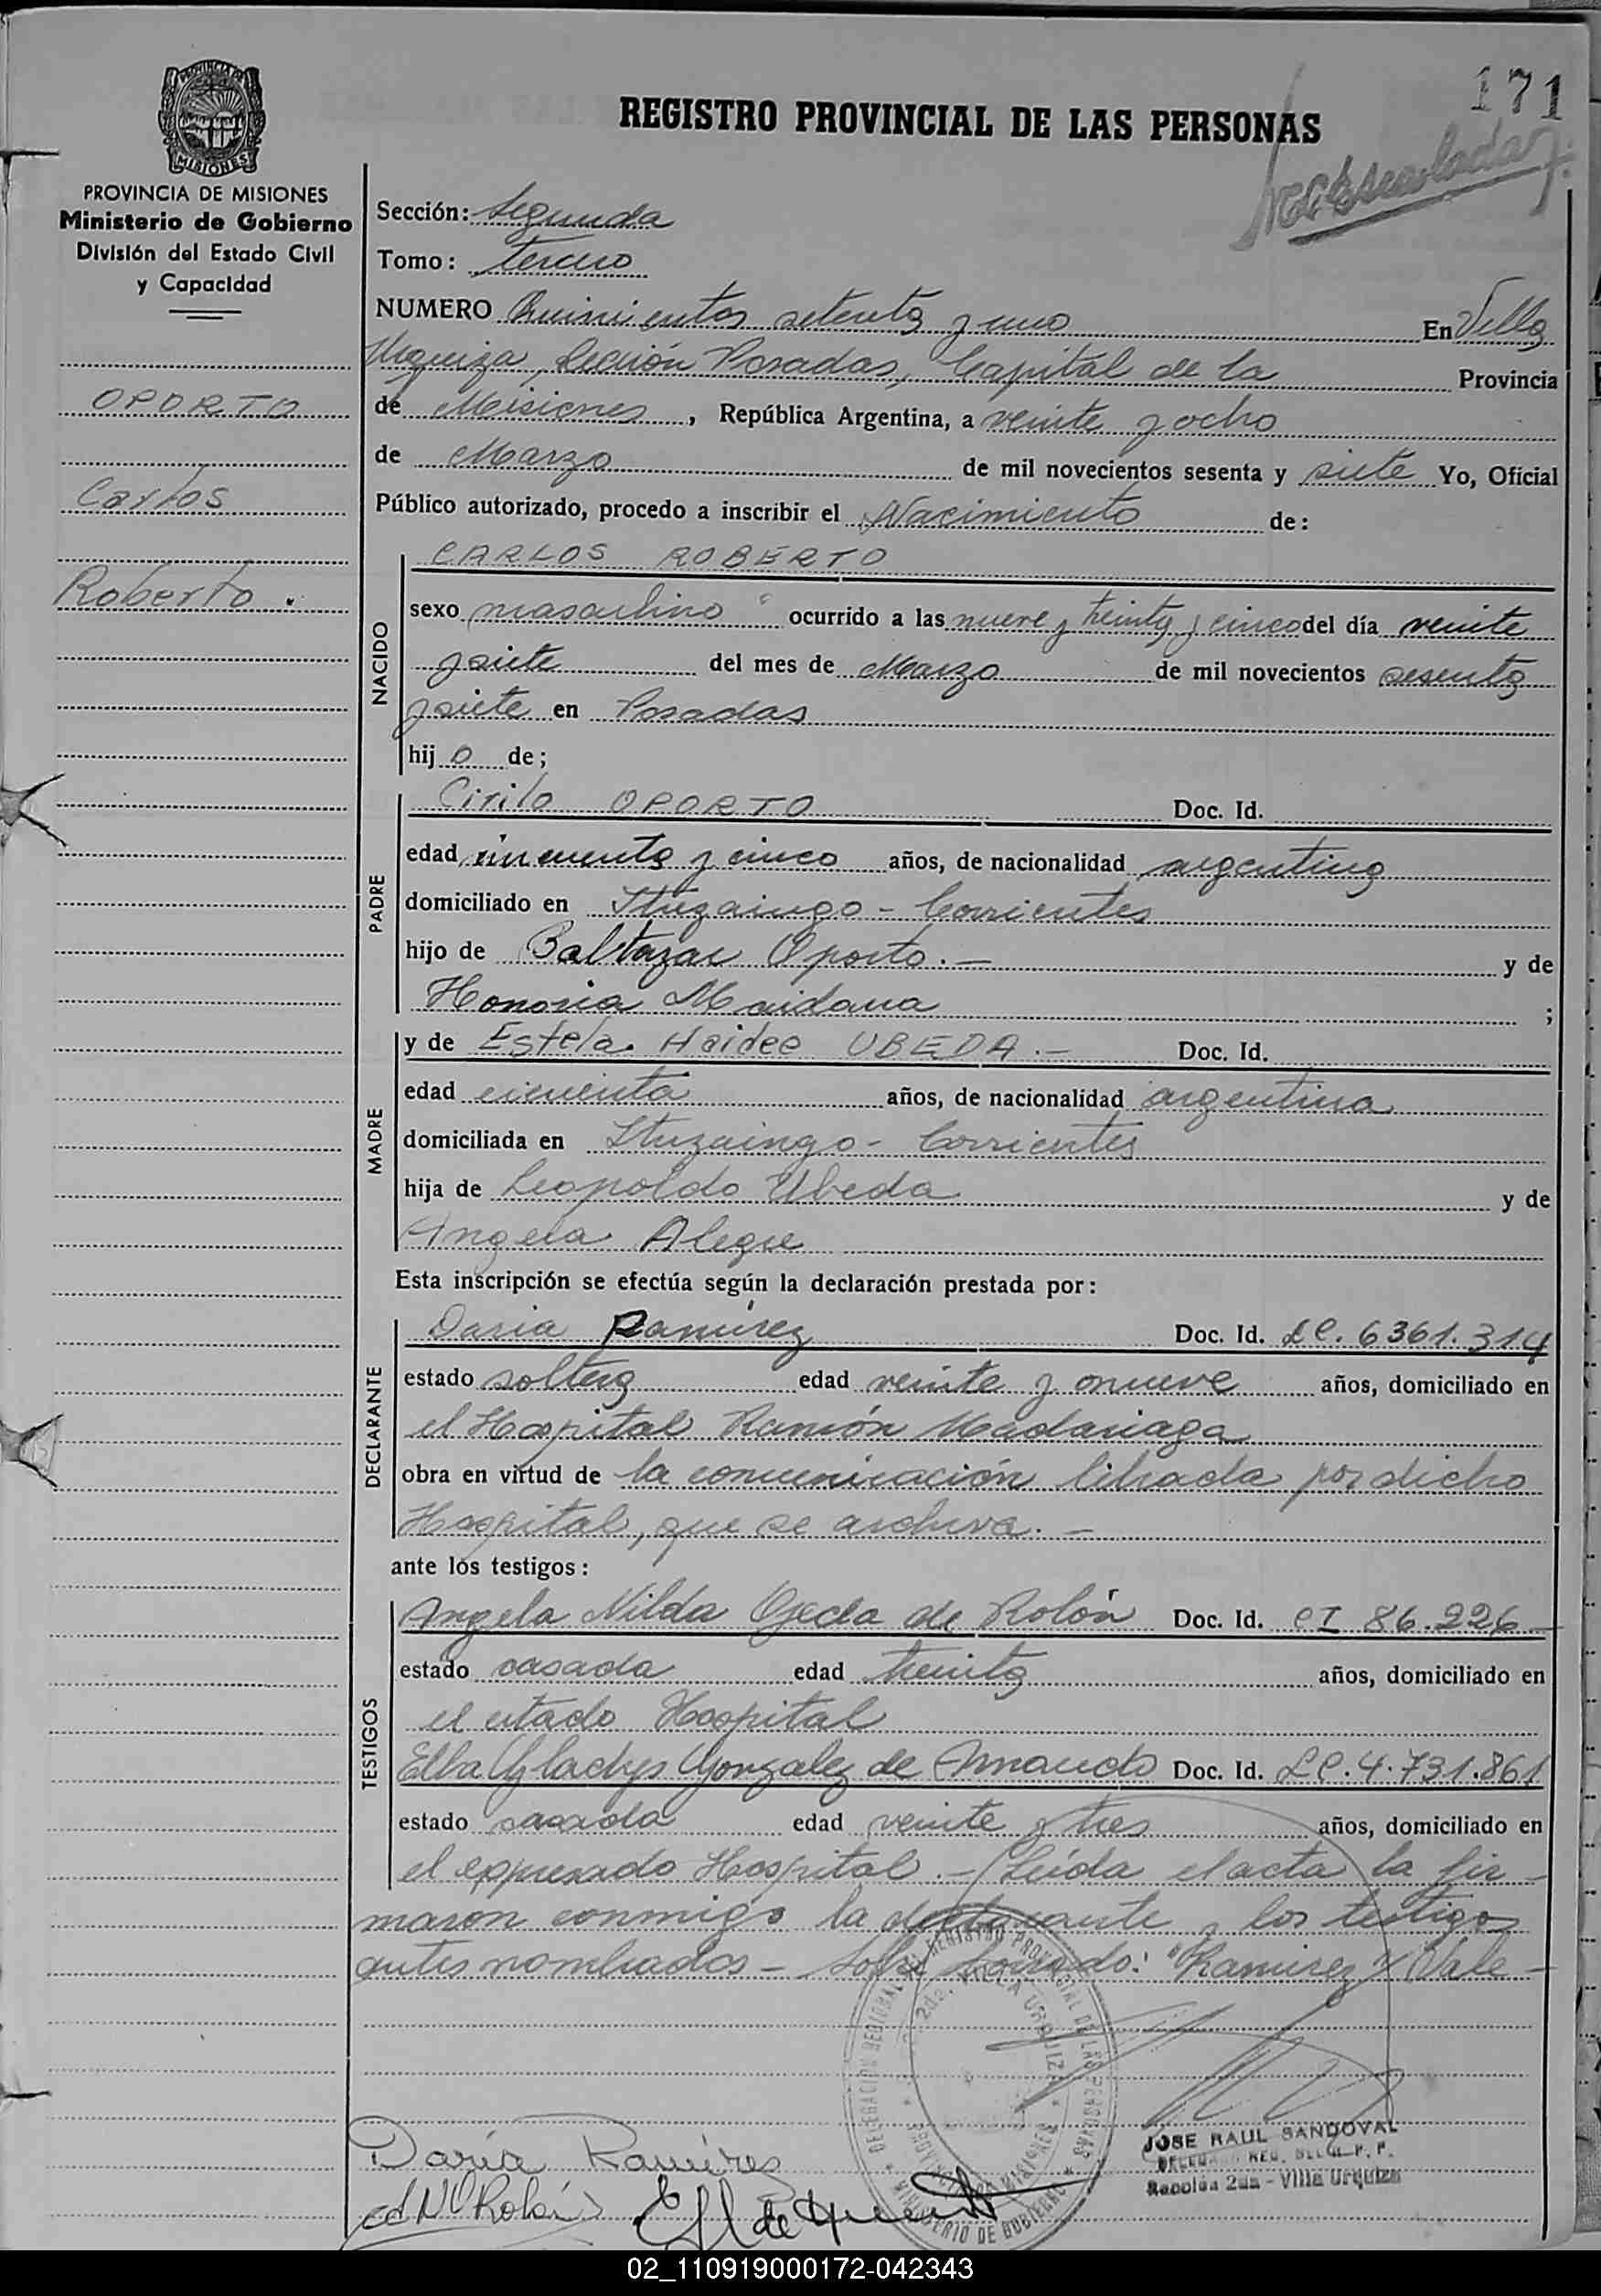 171
REGISTRO PROVINCIAL DE LAS PERSONAS
PROVINCIA DE MISIONES
MISIONES
PROVINCIA DE MISIONES
Ministerio de Gobierno
División del Estado Civil
y Capacidad
OPORTO
Carlos
Roberto.
Sección: Segunda
Tomo: tercero
NUMERO Quinientos setenta y uno En Villa
Urquiza, Sección Posadas, Capital de la Provincia
de Misiones, República Argentina, a veinte y ocho
de Marzo de mil novecientos sesenta y siete Yo, Oficial
Público autorizado, procedo a inscribir el Nacimiento de:
NACIDO
CARLOS ROBERTO
sexo masculino ocurrido a las nueve y treinta y cinco del día veinte
y siete del mes de Marzo de mil novecientos sesenta
y siete en Posadas
hij o de;
PADRE
Cirilo OPORTO Doc. Id.
edad cincuenta y cinco años, de nacionalidad argentina
domiciliado en Ituzaingo - Corrientes
hijo de Baltazar Oporto.- y de
Honoria Maidana ;
MADRE
y de Estela Haidee UBEDA.- Doc. Id.
edad años, de nacionalidad argentina
domiciliada en Ituzaingo - Corrientes
hija de Leopoldo Ubeda y de
Angela Alegre
Esta inscripción se efectúa según la declaración prestada por:
DECLARANTE
Daria Ramirez Doc. Id. LC. 6361.314
estado soltera edad veinte y nueve años, domiciliado en
el Hospital Ramón Madariaga
obra en virtud de la comunicación librada por dicho
Hospital, que se archiva.-
ante los testigos:
TESTIGOS
Angela Nilda Ojeda de Rolón Doc. Id. CI 86.226
estado casada edad treinta años, domiciliado en
el citado Hospital
Elba Gladys Gonzalez de Doc. Id. LC. 4.731.861
estado casada edad veinte y tres años, domiciliado en
el expresado Hospital.- Leída el acta la fir-
maron conmigo la declarante y los testigos
antes nombrados - Sobre borrado: "Ramirez" Vale -
DELEGACION REGIONAL REGISTRO PROVINCIAL DE LAS PERSONAS
2da. VILLA URQUIZA
PROVINCIA DE MISIONES
MINISTERIO DE GOBIERNO
JOSE RAUL SANDOVAL
Sección 2da - Villa Urquiza
Daria Ramirez
A N O Rolón
02_110919000172-042343